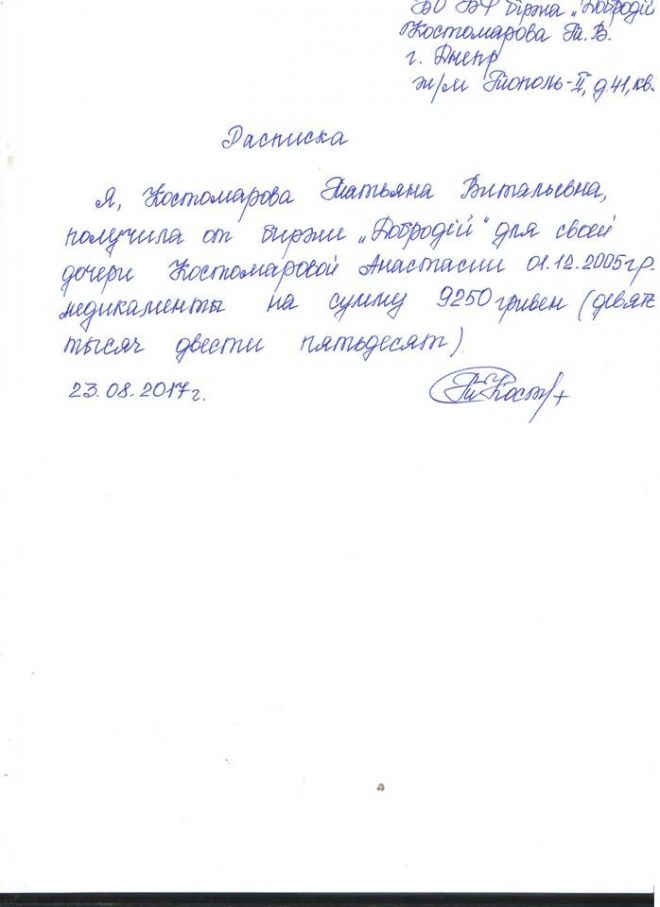 БО БФ біржа „Добродій
Костомарова Т. В.
г. Днепр
ж/м Тополь-II, д.41, кв.
Расписка
Я, Костомарова Татьяна Витальевна,
получила от биржи „Добродій" для своей
дочери Костомаровой Анастасии 01.12.2005г.р.
медикаменты на сумму 9250 гривен (девять
тысяч двести пятьдесят)
23.08.2017г.